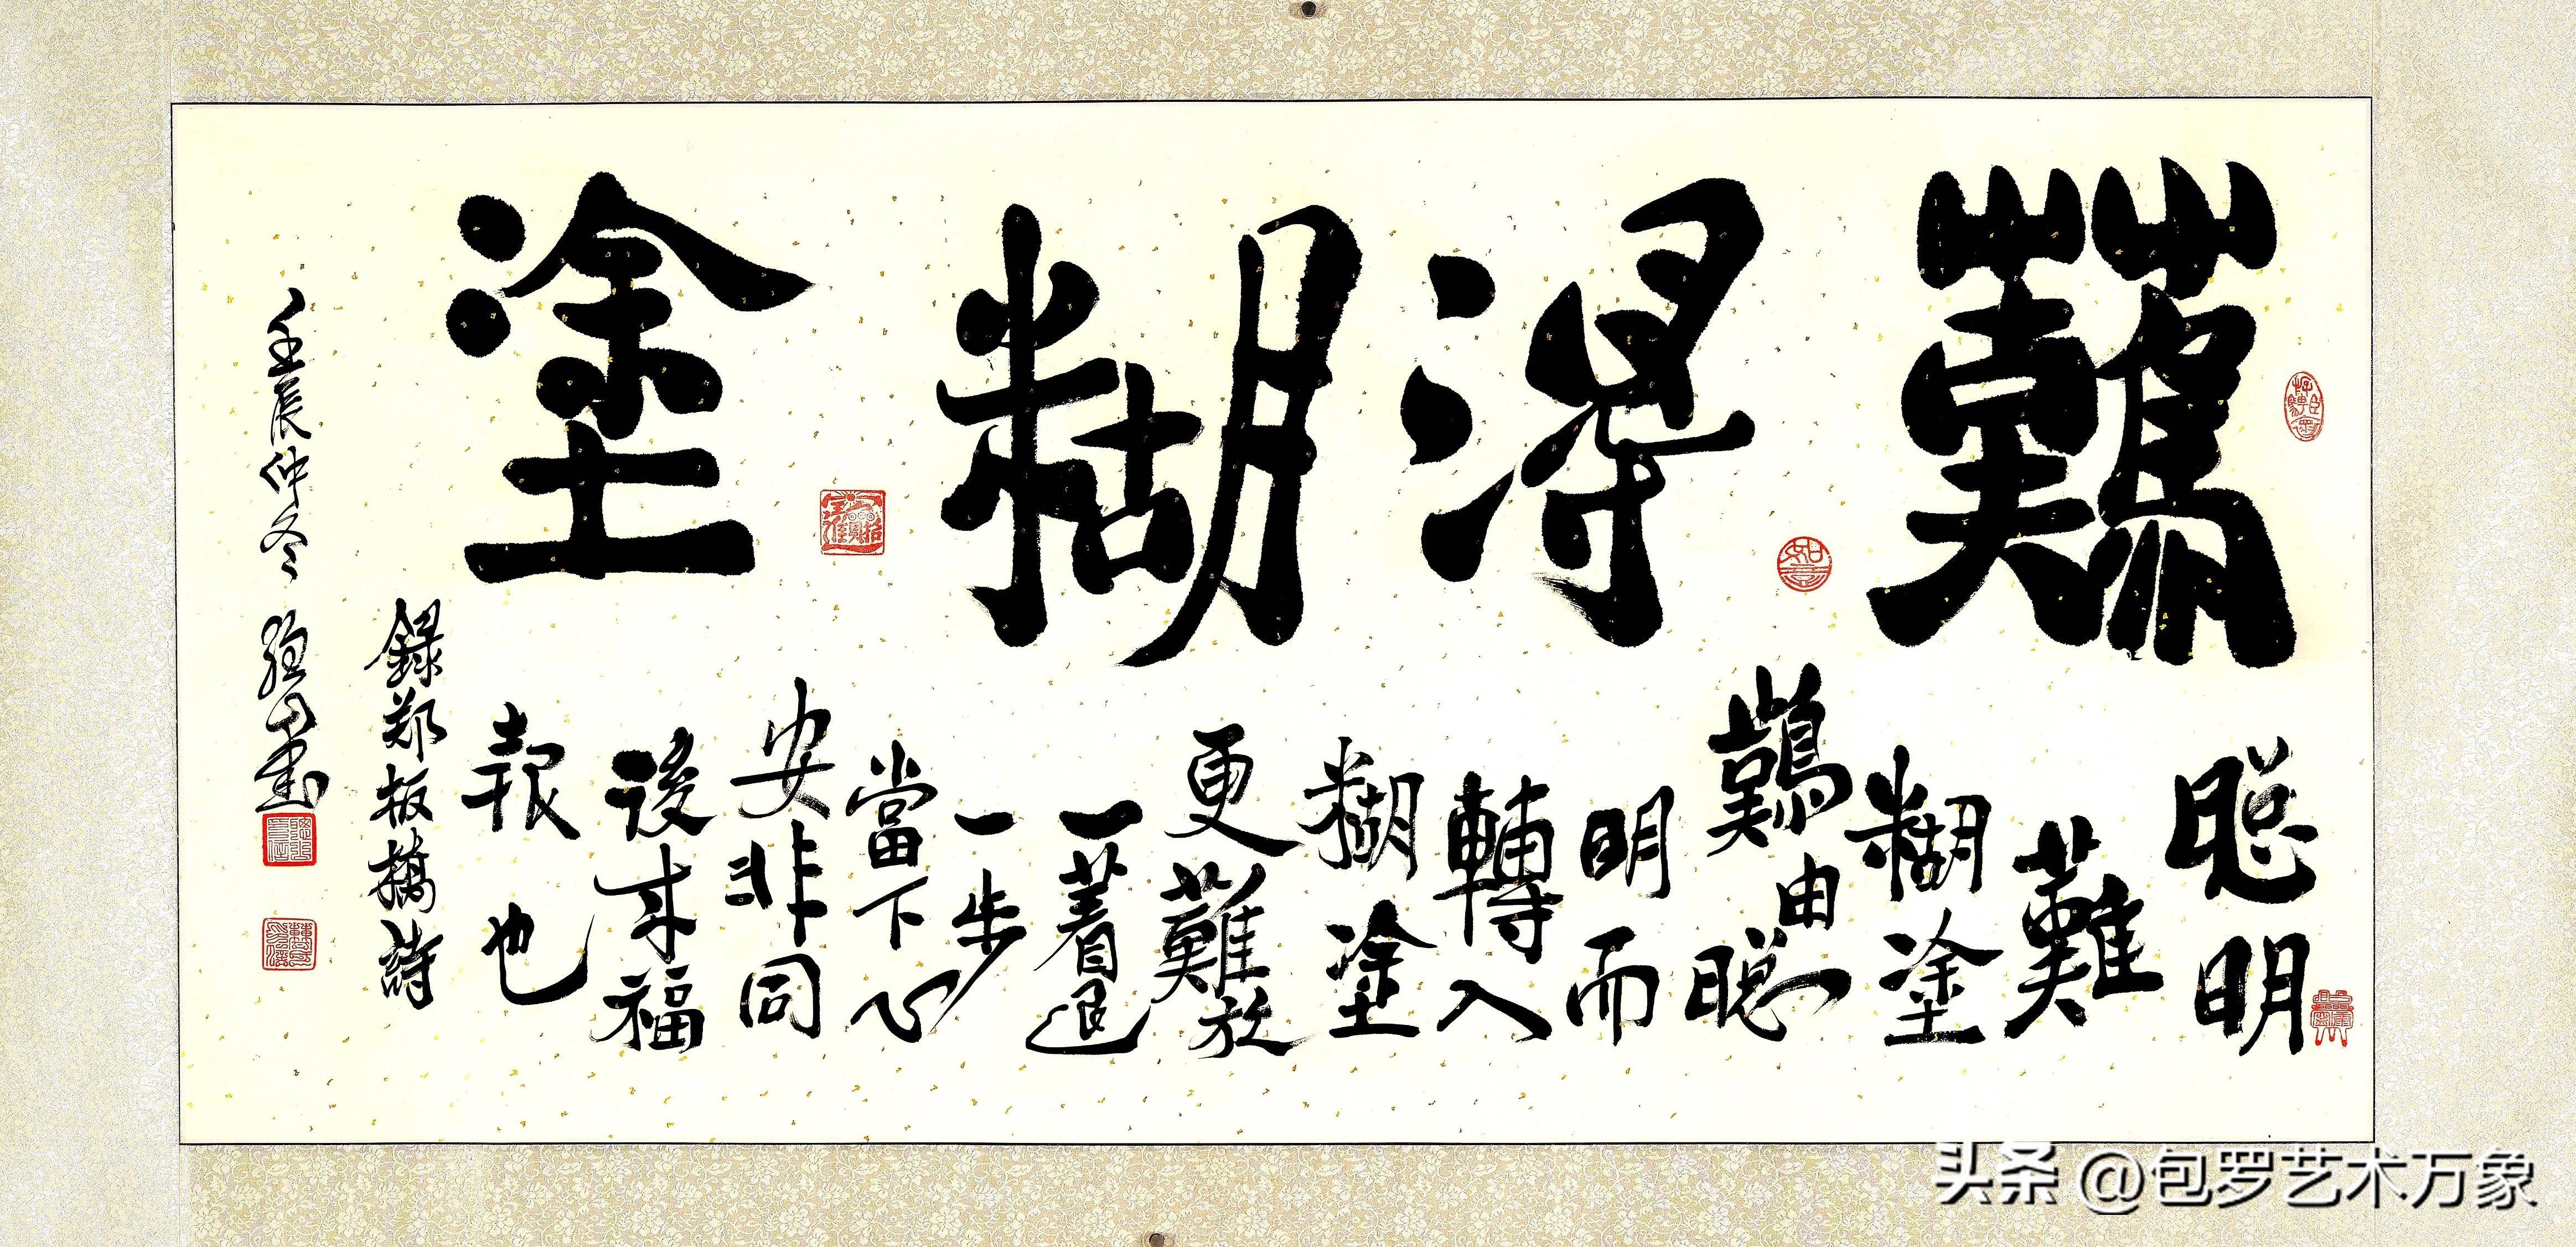 難得糊塗
聰明
難
糊塗
難由聰
明而
轉入
糊塗
更難放
一著退
一步
當下心
安非同
後來福
報也
錄郑板橋詩
壬辰仲冬 書
如意
头条 @包罗艺术万象